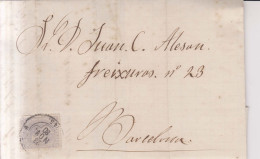 Sr. D. Juan C. Alesan
freixuras. nº 23
Barcelona